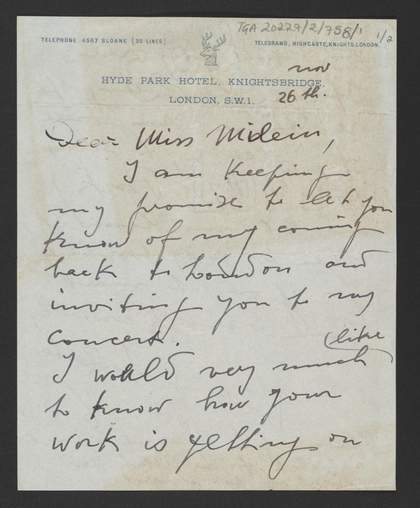 TGA 20229/2/758/1 1/2
TELEPHONE 4567 SLOANE (30 LINES)
TELEGRAMS, HIGHCASTE, KNIGHTS, LONDON.
HYDE PARK HOTEL, KNIGHTSBRIDGE,
LONDON, S.W.1.
nov
26 th.
Dear Miss
I am keeping
my promise to let you
know of my coming
back to London and
inviting you to my
concert.
(like
I would very much
to know how your
work is getting on